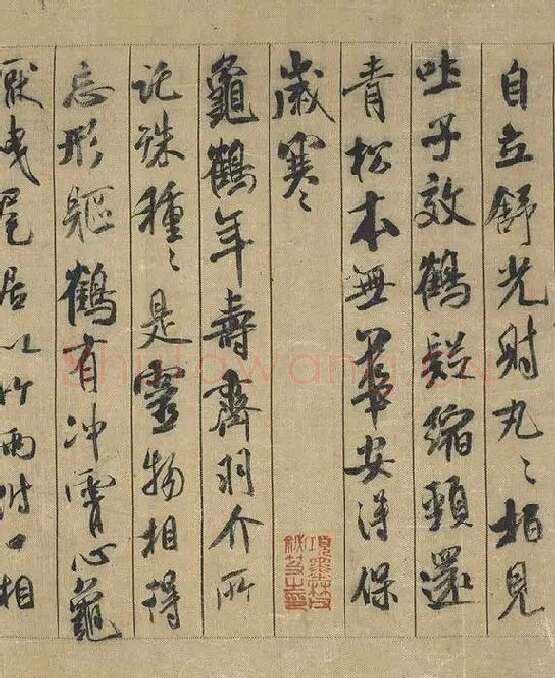 自立舒光射丸〻柏見
吐子效鶴疑縮頸還
青松本無華安得保
歲寒
龜鶴年壽齊羽介所
託殊種〻是靈物相得
忘形軀鶴有沖霄心龜
厭曳尾居以竹兩附口相
項墨林父
秘笈之印